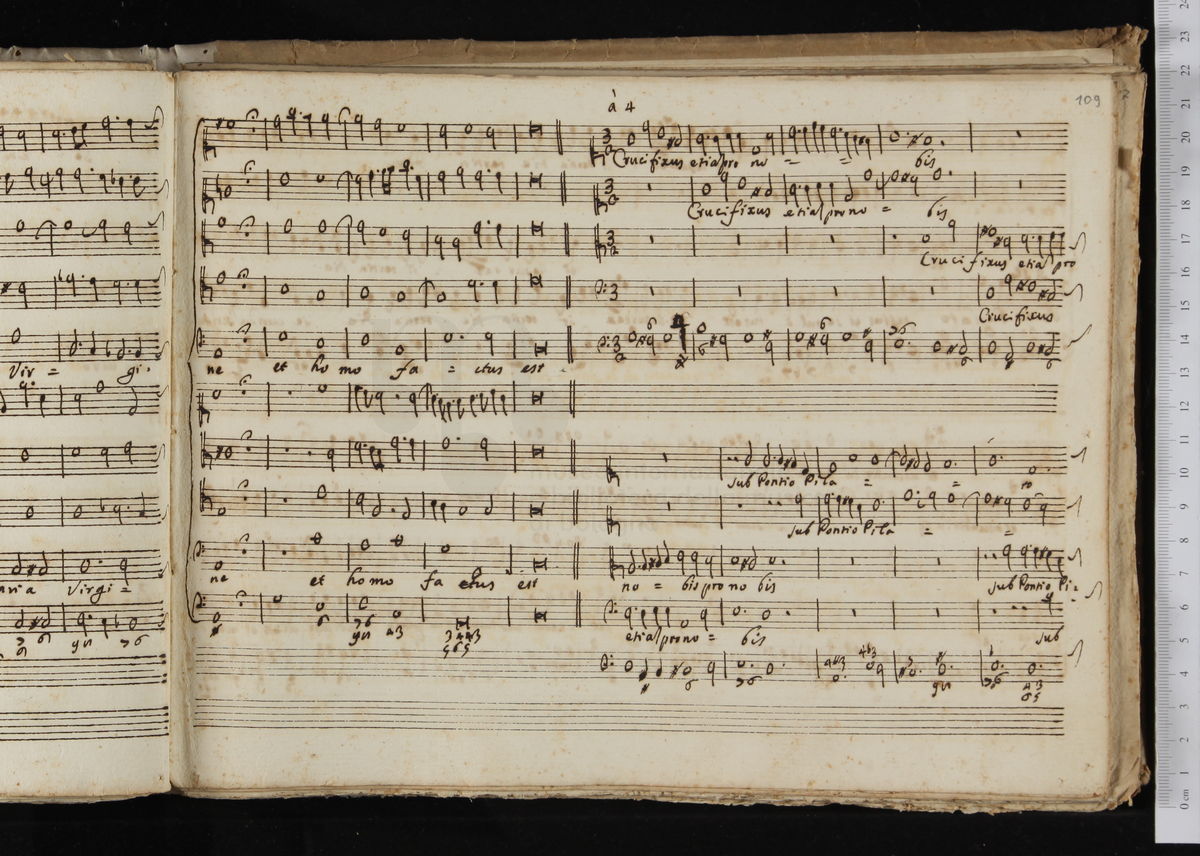 à 4
109
Crucifixus etia pro no = = bis
Crucifixus etia pro no = bis
Crucifixus etia pro
Crucifixus
Vir = gi.
ne et ho mo fa = ctus est
sub Pontio Pila = = to
sub Pontio Pila = =
Virgi =
ne et ho mo fa ctus est
no = bis pro no bis
sub Pontio Pi =
etia pro no = bis
sub